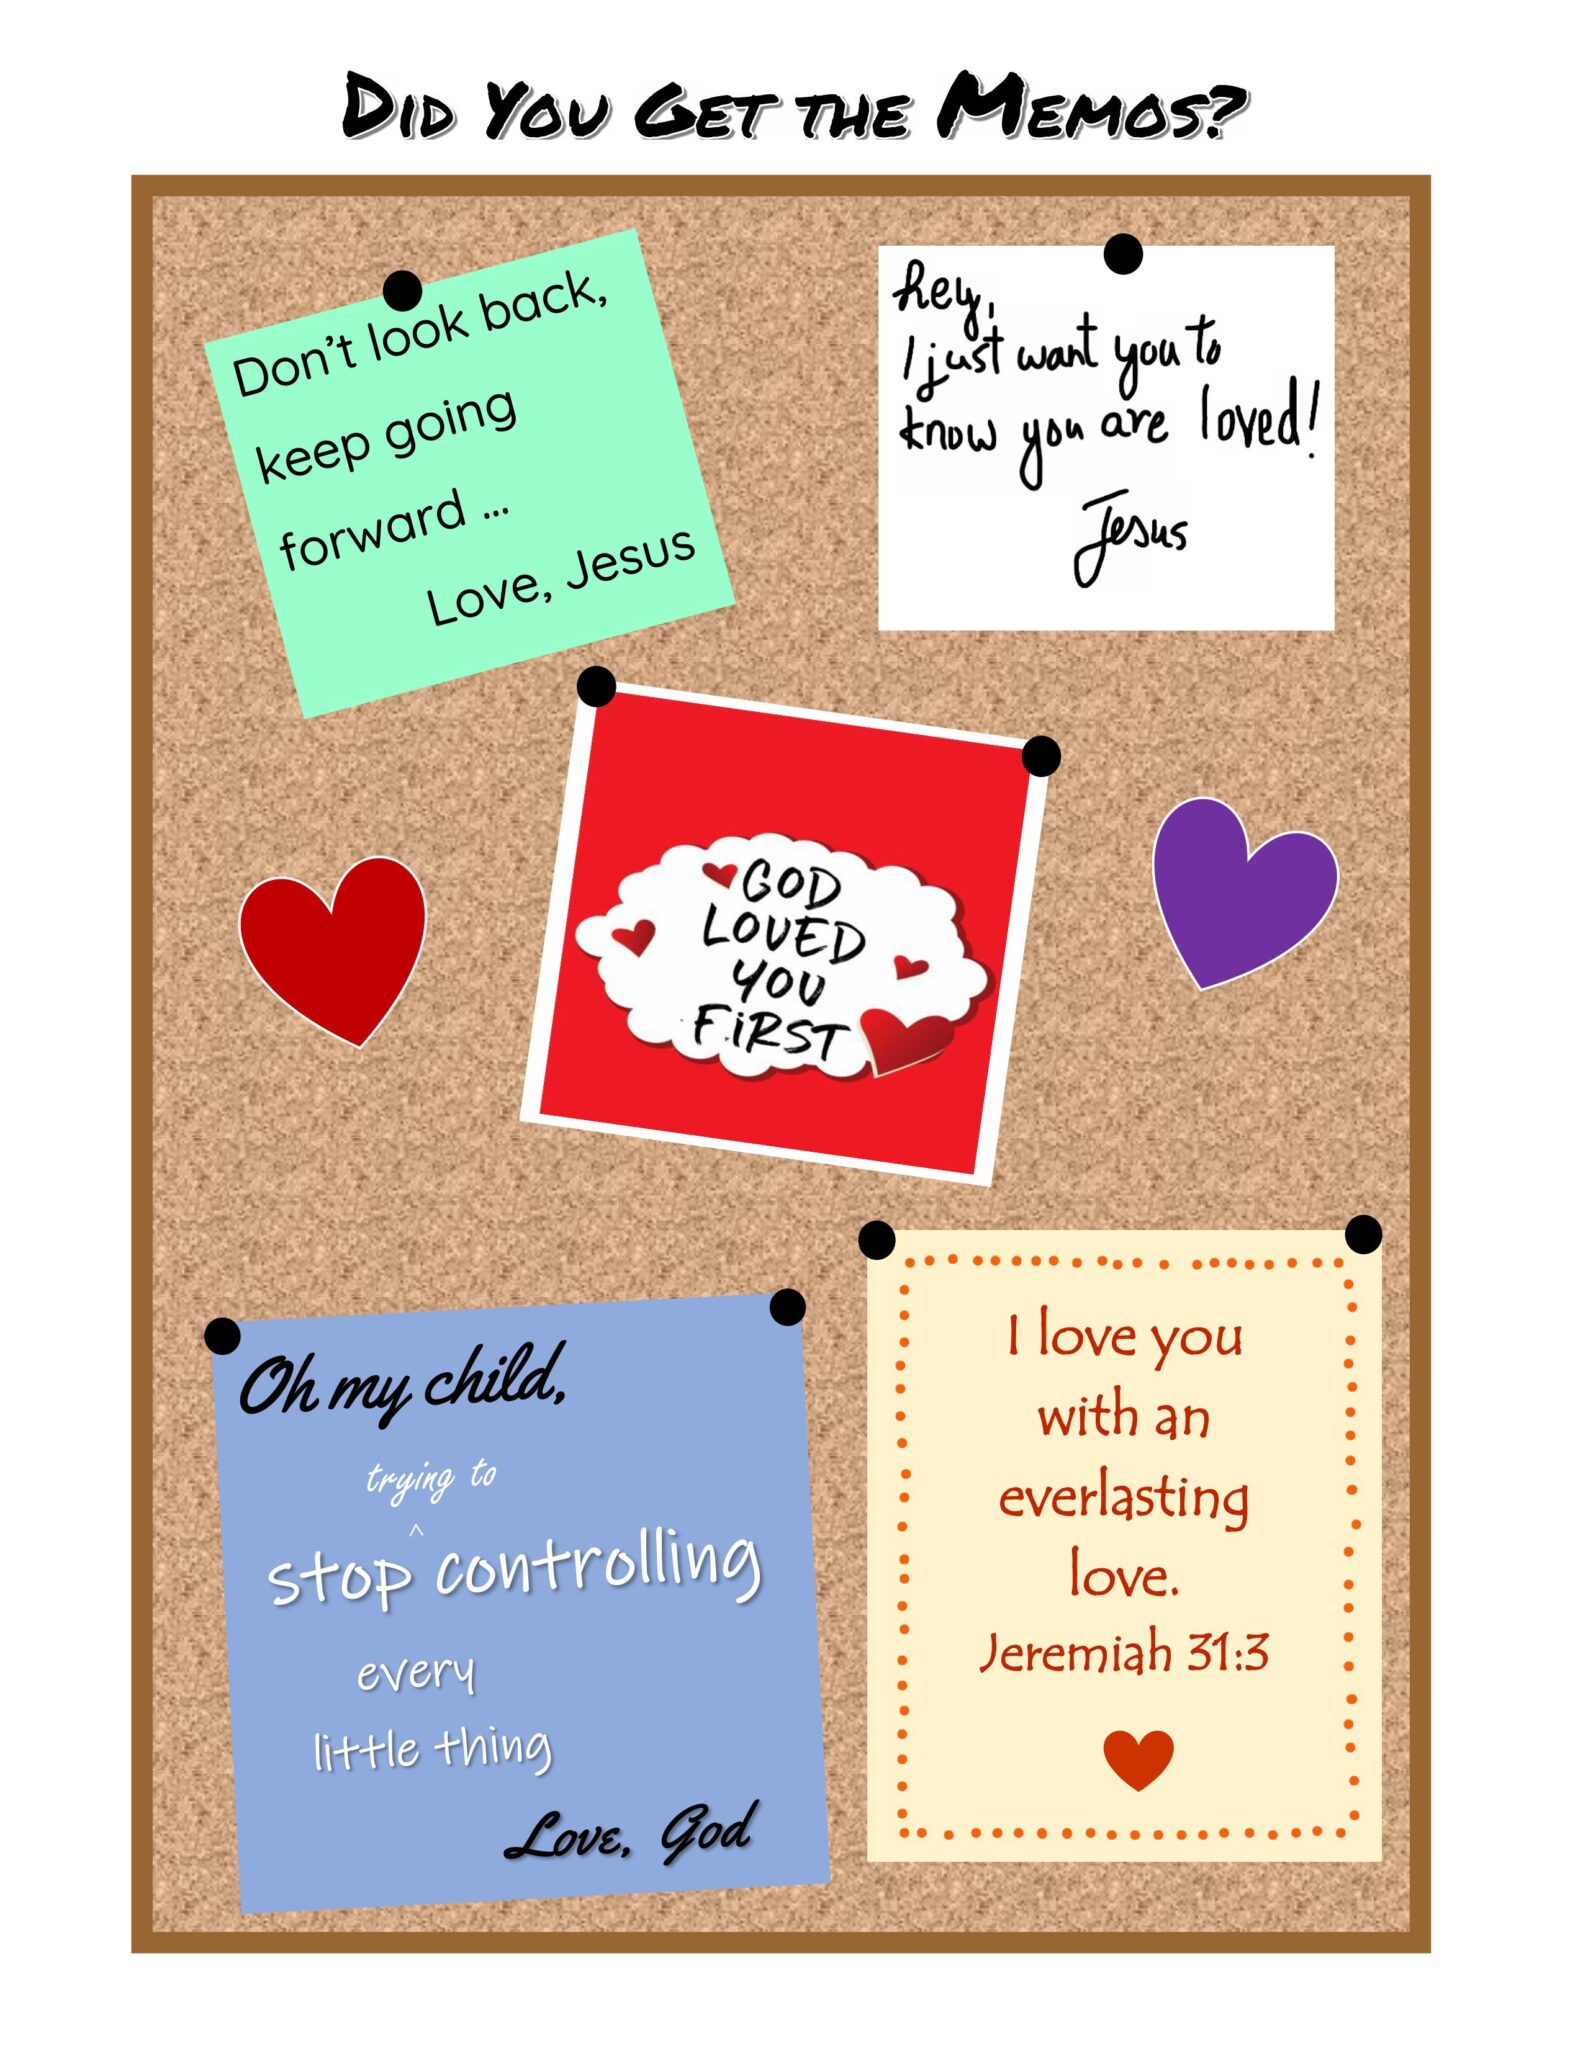 Did You Get the Memos?
Don't look back,
keep going
forward ...
Love, Jesus
hey,
I just want you to
know you are loved!
Jesus
GOD
LOVED
YOU
FiRST
Oh my child,
trying to
^
stop controlling
every
little thing
Love, God
I love you
with an
everlasting
love.
Jeremiah 31:3